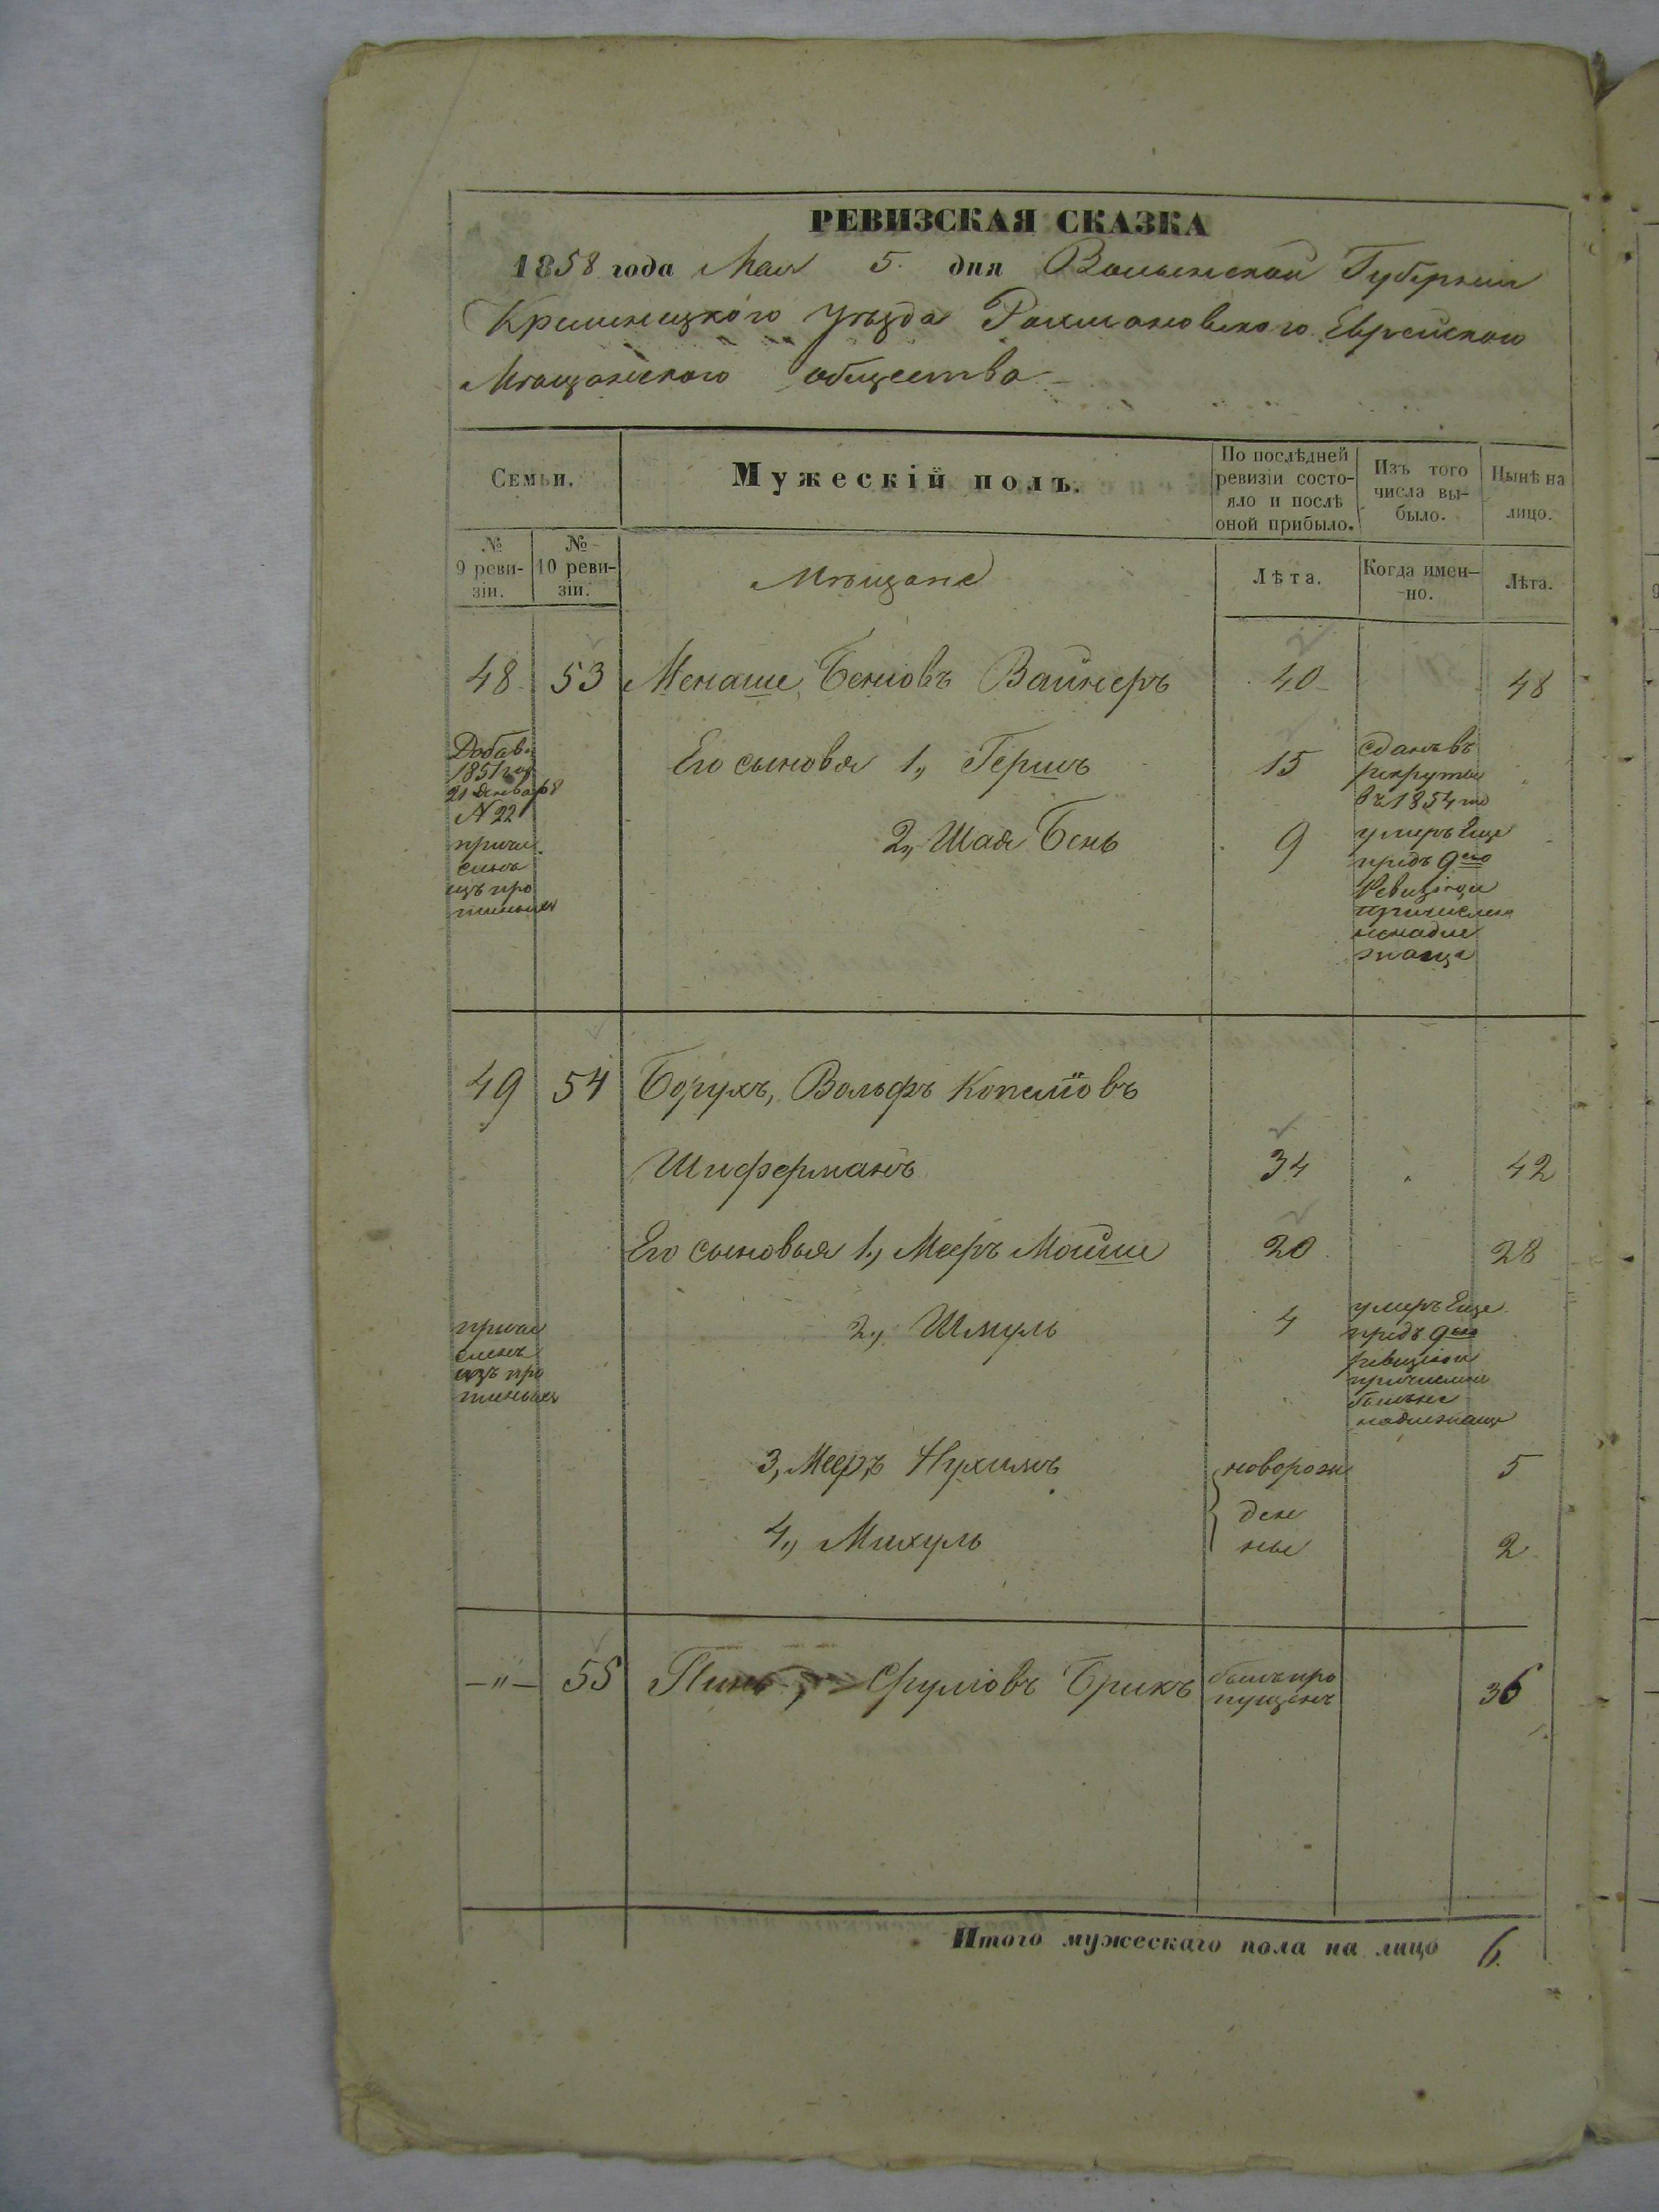 РЕВИЗСКАЯ СКАЗКА
1858 года Мая 5. дня Волынской Губерніи
Кременецкого Уѣзда Рахмановского Еврейского
Мѣщанского общества
Семьи.
Мужескій полъ.
По послѣдней
ревизіи состо-
яло и послѣ
оной прибыло.
Изъ того
числа вы-
было.
Нынѣ на
лицо.
№
9 реви-
зіи.
№
10 реви-
зіи.
Мѣщане
Лѣта.
Когда имен-
но.
Лѣта.
48 53 Менаше Беніовъ Вайнеръ 40 48
Добав.
1851 год
21 Января
№ 22
причи
сленъ
изъ про
писныхъ
Его сыновья 1, Гершъ 15
сданъ въ
рекруты
въ 1854 го
2, Шая Бень 9
умеръ Еще
предъ 9ею
Ревизіею
причислен
ненадле
жаще
49 54 Борухъ, Вольфъ Копеліовъ
Шиферманъ 34 42
Его сыновья 1, Мееръ Мойше 20 28
2, Шмуль 4
причи
сленъ
изъ про
писныхъ
умеръ Еще
предъ 9ею
ревизіею
причисленъ
былъ не
надлежаще
3, Мееръ Нухимъ новорож 5
ден
4, Михуль ные 2
-"- 55 Пинь, Фуліовъ Брикъ былъ про
пущенъ 36
Итого мужескаго пола на лицо 6.